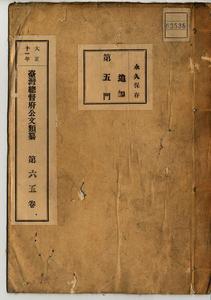 永久保存
追加
第五門
大正
十一年
臺灣總督府公文類纂
第六五卷